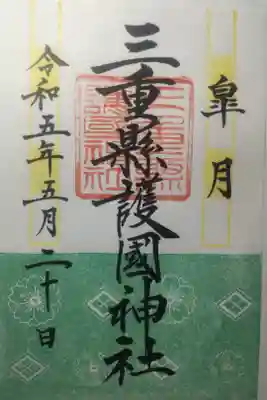 皐月
三重縣護國神社
令和五年五月二十日